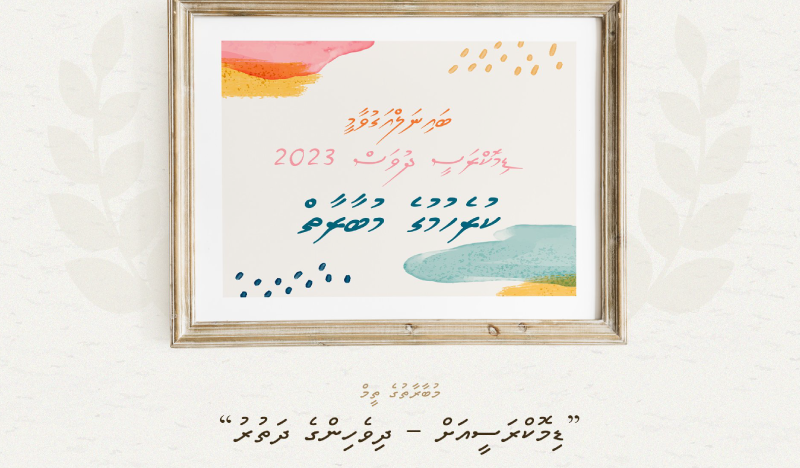 ބައިނަލްއަޤުވާމީ
ޑިމޮކްރަސީ ދުވަސް 2023
ކުރެހުމުގެ މުބާރާތް
މުބާރާތުގެ ތީމް
”ޑިމޮކްރަސީއަށް – ދިވެހިންގެ ދަތުރު“